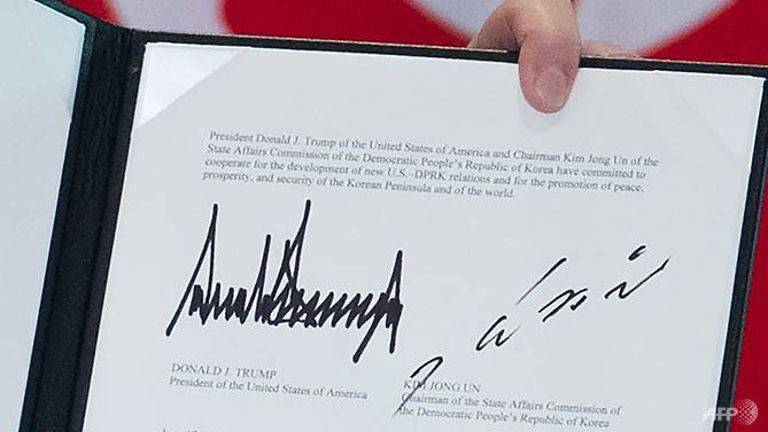 President Donald J. Trump of the United States of America and Chairman Kim Jong Un of the
State Affairs Commission of the Democratic People's Republic of Korea have committed to
cooperate for the development of new U.S.–DPRK relations and for the promotion of peace,
prosperity, and security of the Korean Peninsula and of the world.
DONALD J. TRUMP
President of the United States of America
KIM JONG UN
Chairman of the State Affairs Commission of
the Democratic People's Republic of Korea
AFP